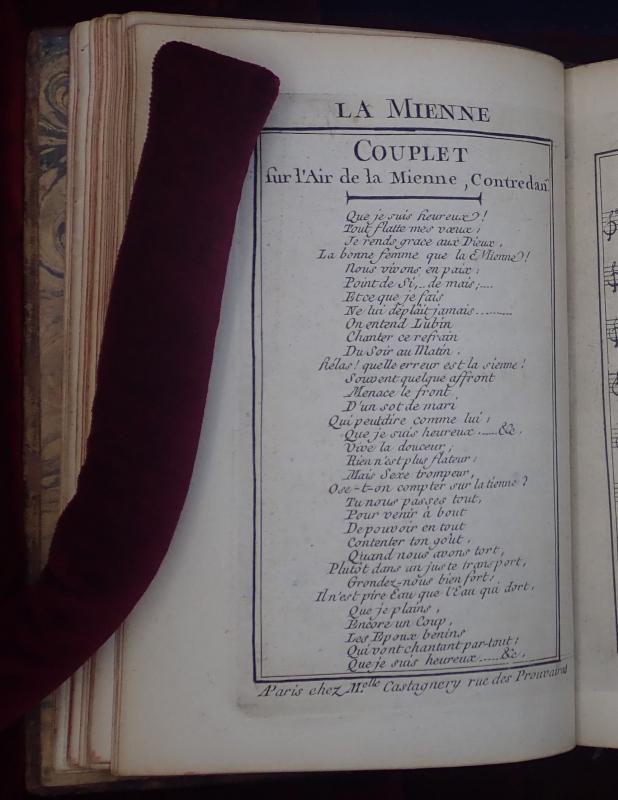 LA MIENNE
COUPLET
sur l'Air de la Mienne, Contredan.
Que je suis heureux!
Tout flatte mes vœux;
Je rends grace aux Dieux,
La bonne femme que la Mienne!
Nous vivons en paix;
Point de Si, .. de mais; ....
Et ce que je fais
Ne lui déplait jamais ..........
On entend Lubin
Chanter ce refrain
Du Soir au Matin.
Hélas! quelle erreur est la sienne!
Souvent quelque affront
Menace le front
D'un sot de mari
Qui peut dire comme lui;
Que je suis heureux ..... &c.
Vive la douceur;
Rien n'est plus flateur;
Mais Sexe trompeur,
Ose-t-on compter sur la tienne?
Tu nous passes tout,
Pour venir à bout
De pouvoir en tout
Contenter ton goût.
Quand nous avons tort,
Plutôt dans un juste transport,
Grondez-nous bien fort;
Il n'est pire Eau que l'Eau qui dort,
Que je plains,
Encore un Coup,
Les Epoux benins
Qui vont chantant par-tout;
Que je suis heureux ..... &c.
A Paris chez M.elle Castagnery rue des Prouvaires